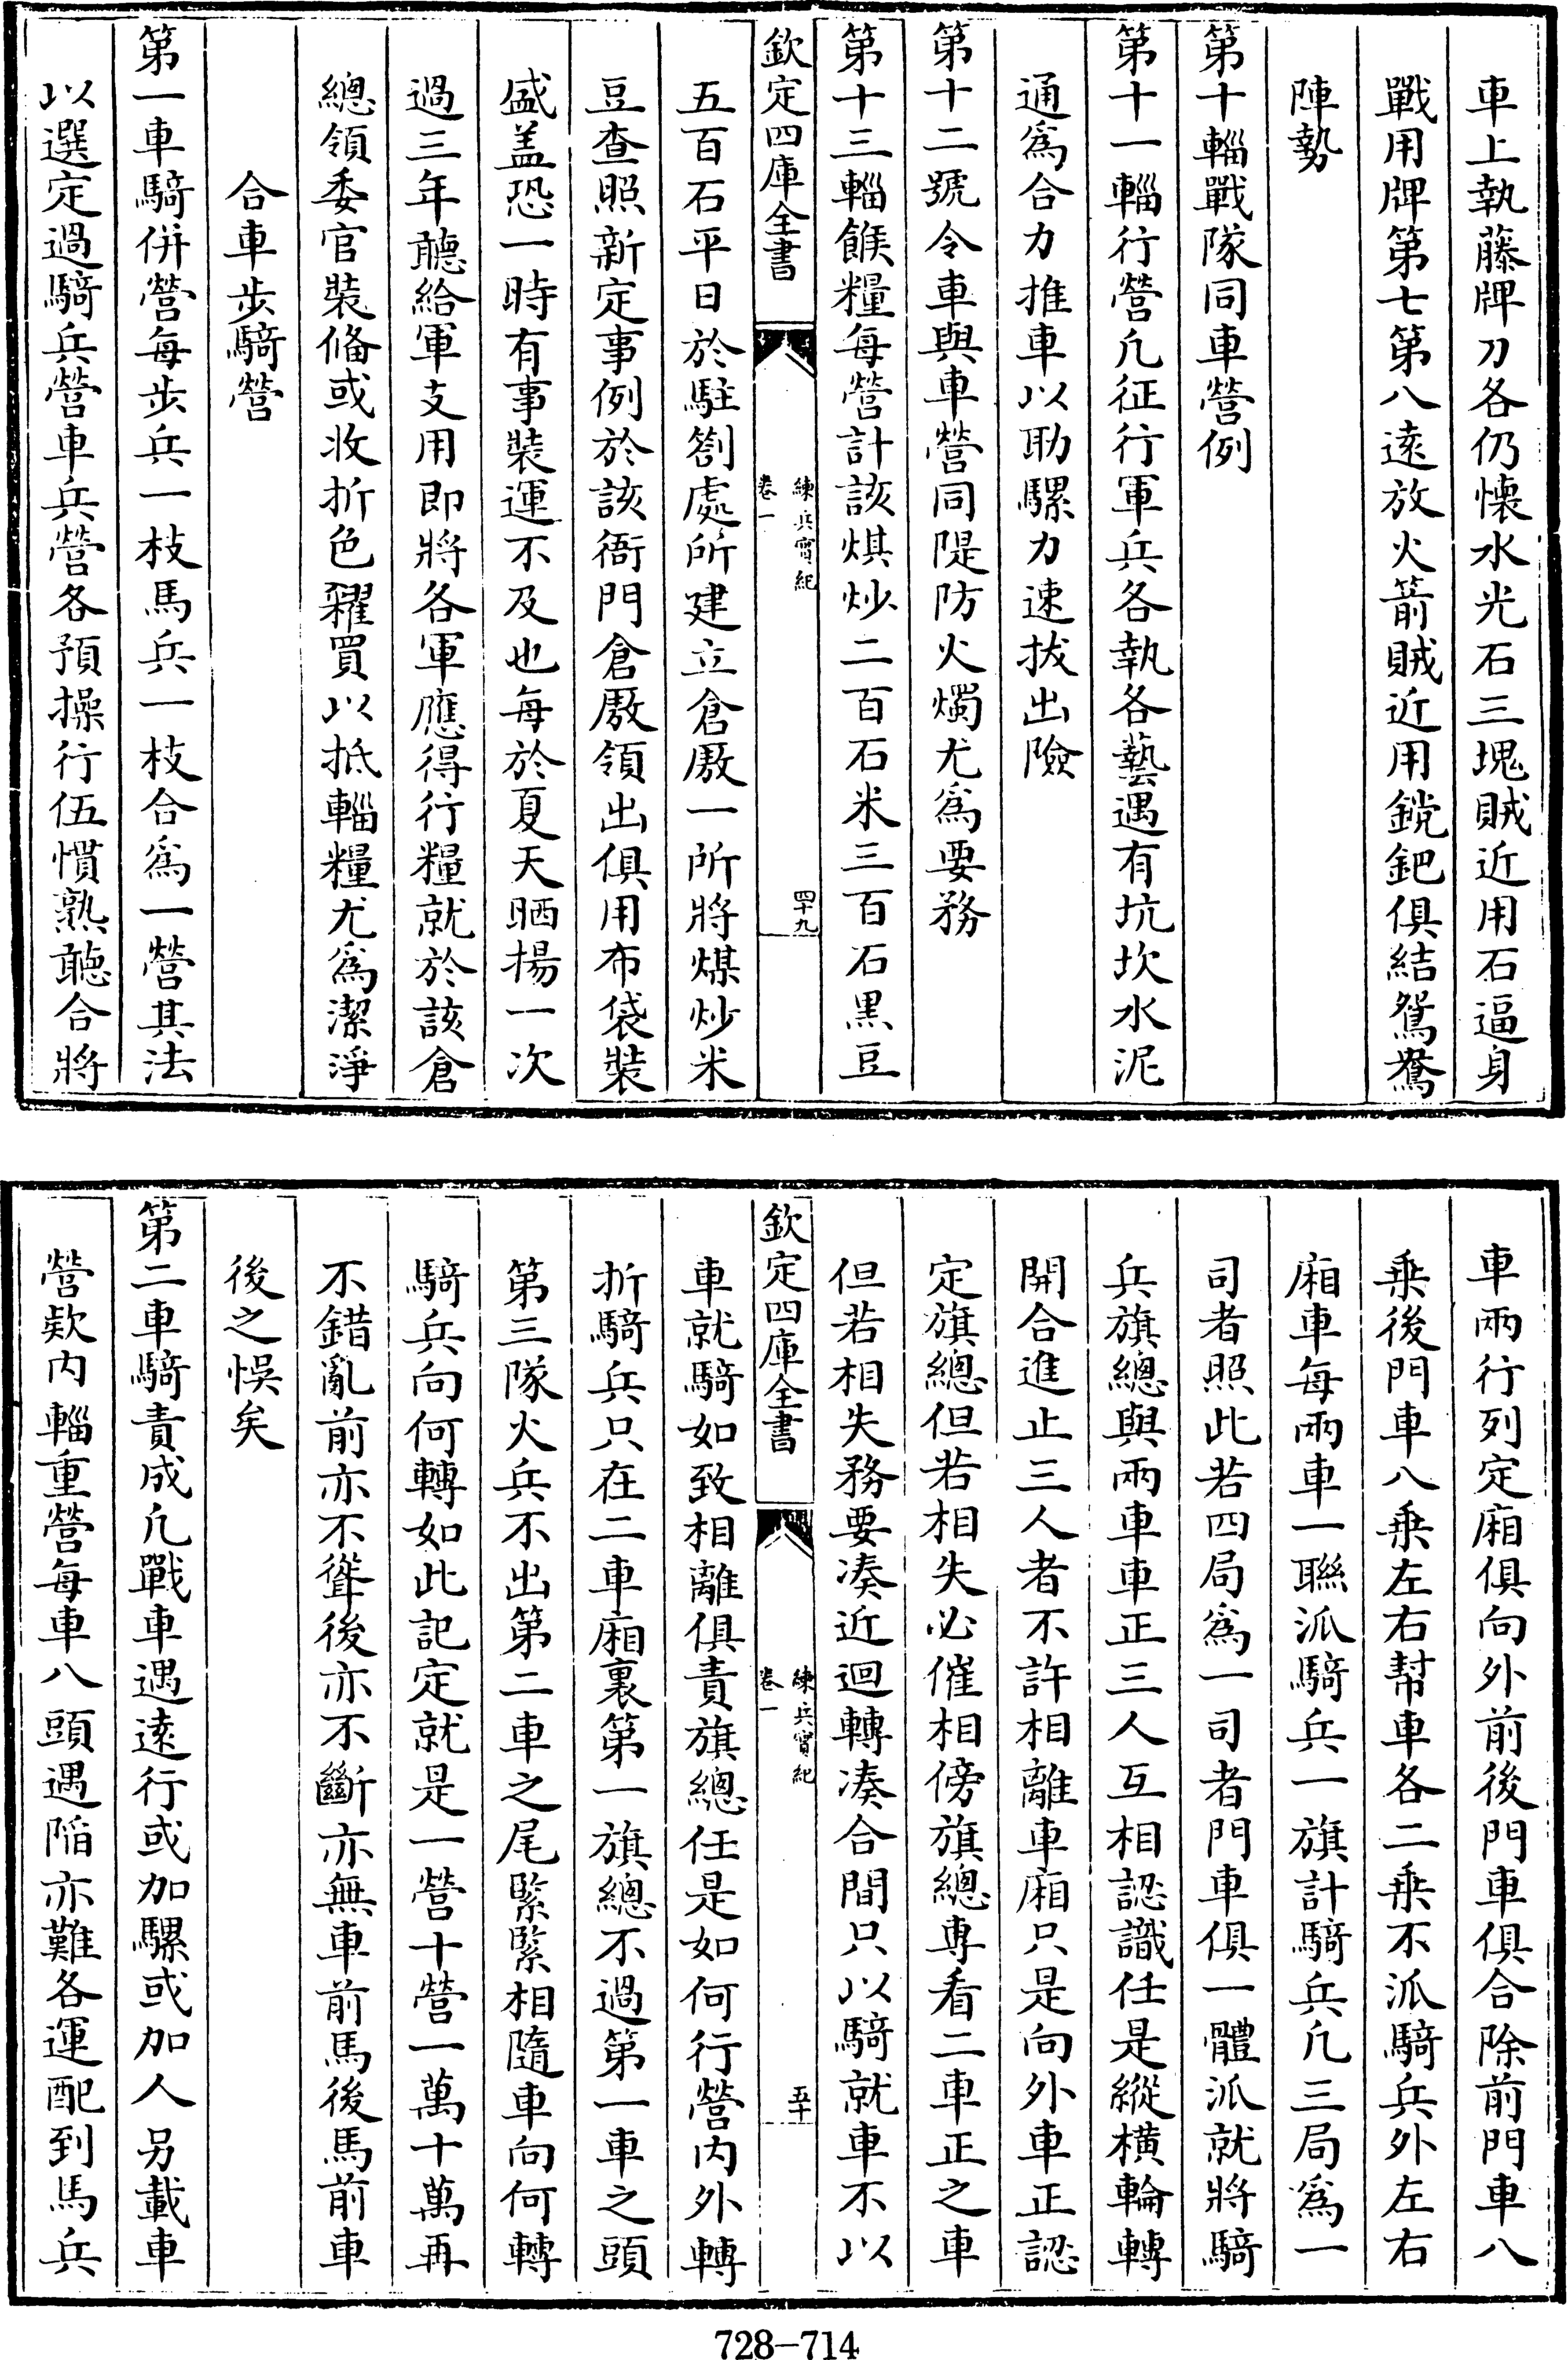 車上執藤牌刀各仍懐水光石三塊賊近用石逼身
戰用牌第七第八逺放火箭賊近用鎲鈀俱結鴛鴦
陣勢
第十輜戰隊同車營例
第十一輜行營凢征行軍兵各執各藝遇有坑坎水泥
通爲合力推車以助騾力速拔出險
第十二號令車與車營同隄防火燭尤爲要務
第十三輜餱糧每營計該煤炒二百石米三百石黒豆
欽定四庫全書
練兵實紀
卷一
四十九
五百石平日於駐劄處所建立倉厫一所將煤炒米
豆查照新定事例於該衙門倉厫領出俱用布袋裝
盛盖恐一時有事裝運不及也每於夏天晒揚一次
過三年聽給軍支用即將各軍應得行糧就於該倉
總領委官裝俻或收折色糴買以抵輜糧尤爲潔淨
合車步騎營
第一車騎併營每步兵一枝馬兵一枝合爲一營其法
以選定過騎兵營車兵營各預操行伍慣熟聽合將
車兩行列定廂俱向外前後門車俱合除前門車八
乗後門車八乗左右幇車各二乗不派騎兵外左右
廂車每兩車一聯派騎兵一旗計騎兵凢三局爲一
司者照此若四局爲一司者門車俱一體派就將騎
兵旗總與兩車車正三人互相認識任是縱橫輪轉
開合進止三人者不許相離車廂只是向外車正認
定旗總但若相失必催相傍旗總専看二車正之車
但若相失務要凑近迴轉凑合間只以騎就車不以
欽定四庫全書
練兵實紀
卷一
五十
車就騎如致相離俱責旗總任是如何行營内外轉
折騎兵只在二車廂裏第一旗總不過第一車之頭
第三隊火兵不出第二車之尾緊緊相隨車向何轉
騎兵向何轉如此記定就是一營十營一萬十萬再
不錯亂前亦不聳後亦不斷亦無車前馬後馬前車
後之悞矣
第二車騎責成凢戰車遇逺行或加騾或加人另載車
營欵内輜重營每車八頭遇陷亦難各運配到馬兵
728-714